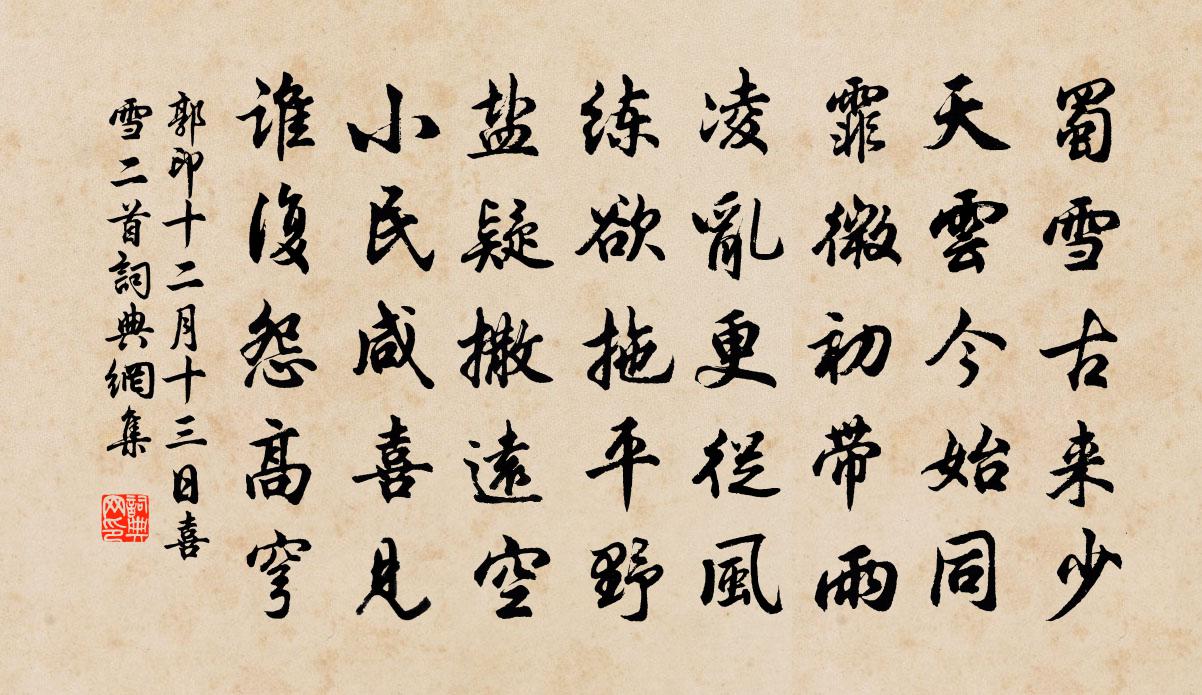 蜀雪古来少
天雲今始同
霏微初带雨
凌亂更從風
练欲拖平野
盐疑撒遠空
小民咸喜見
谁復怨高穹
郭印十二月十三日喜
雪二首詞典網集
詞典
网印